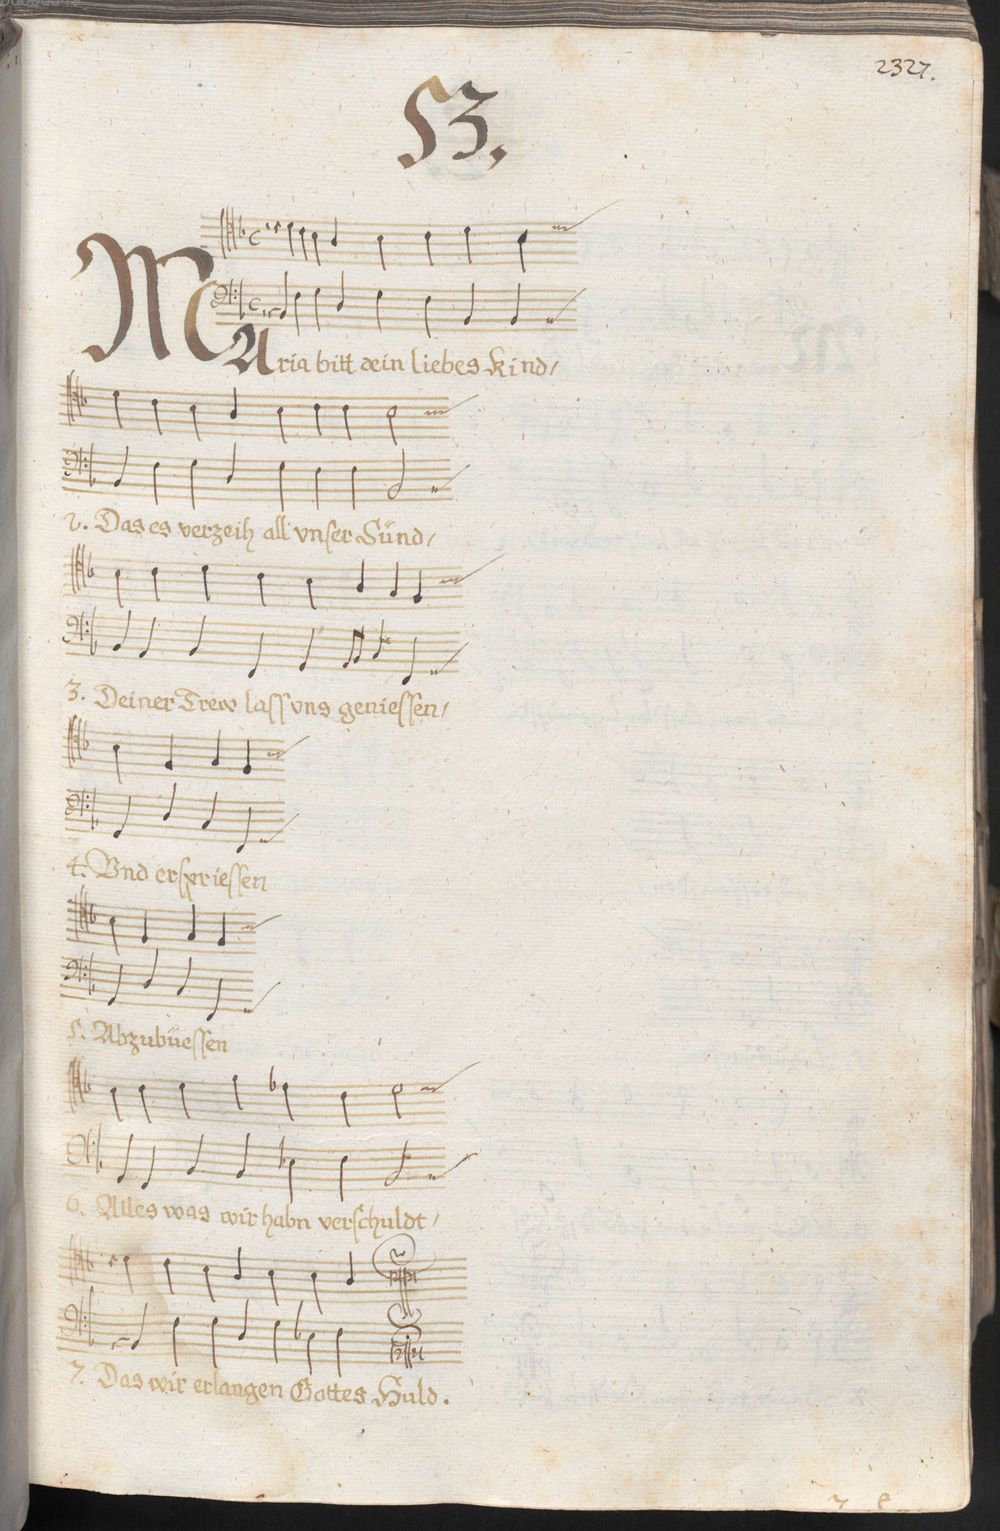 2327.
53.
MAria bitt dein liebes Kind/
2. Das es verzeih all vnser Sünd/
3. Deiner Trew lass vns geniessen/
4. Vnd erspriessen
5. Abzubüessen
6. Alles was wir habn verschuldt/
7. Das wir erlangen Gottes Huld.